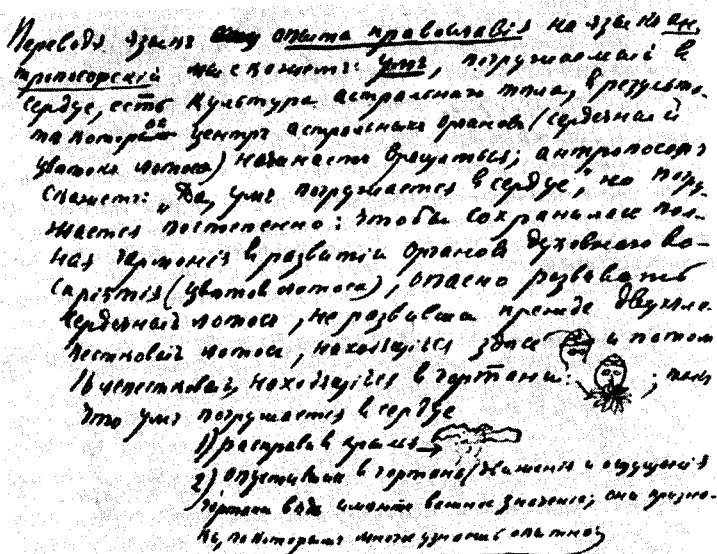 Переводя языкъ опыта православія на языкъ ан-
тропософскій мы скажемъ: умъ, погружаемый въ
сердце, есть культура астральнаго тѣла, въ резуль-
та котораго центръ астральныхъ органовъ (сердечный
цвѣтокъ лотоса) начинаетъ вращаться; антропософъ
скажетъ: „Да, умъ погружается въ сердце“, но погру-
жается постепенно: чтобы сохранилась пол-
ная гармонія въ развитіи органовъ духовнаго во-
спріятія (цвѣтовъ лотоса), опасно развивать
сердечный лотосъ, не развивши прежде двухле-
пестковый лотосъ, находящійся здѣсь и потомъ
16 лепестковый, находящійся въ гортани: ; такъ
что умъ погружается въ сердце
1) расправивъ крылья →
2) опустившись въ гортань (движенія и ощущенія
гортани вѣдь имѣютъ важное значеніе; они призна-
ки, по которымъ многое узнаешь опытно)